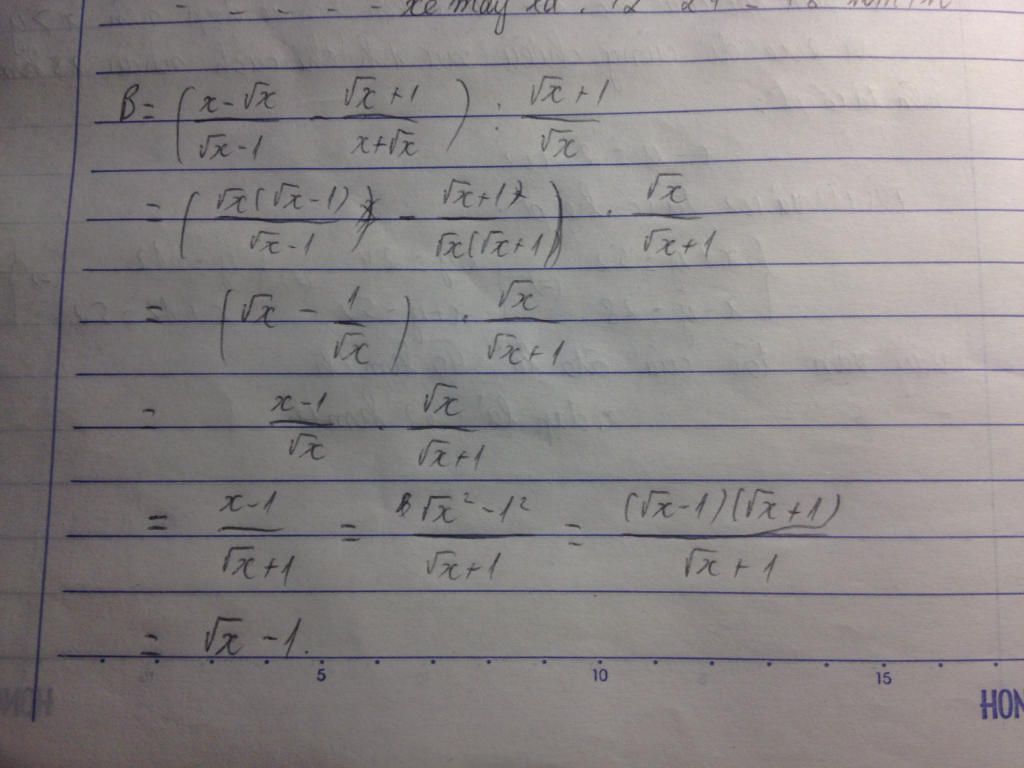 xe máy là :
B = ( (x-√x)/(√x-1) - (√x+1)/(x+√x) ) : (√x+1)/√x
= ( √x(√x-1)/(√x-1) - (√x+1)/(√x(√x+1)) ) . √x/(√x+1)
= ( √x - 1/√x ) . √x/(√x+1)
= (x-1)/√x . √x/(√x+1)
= (x-1)/(√x+1) = (√x² - 1²)/(√x+1) = (√x-1)(√x+1)/(√x+1)
= √x - 1.
5 10 15
HON